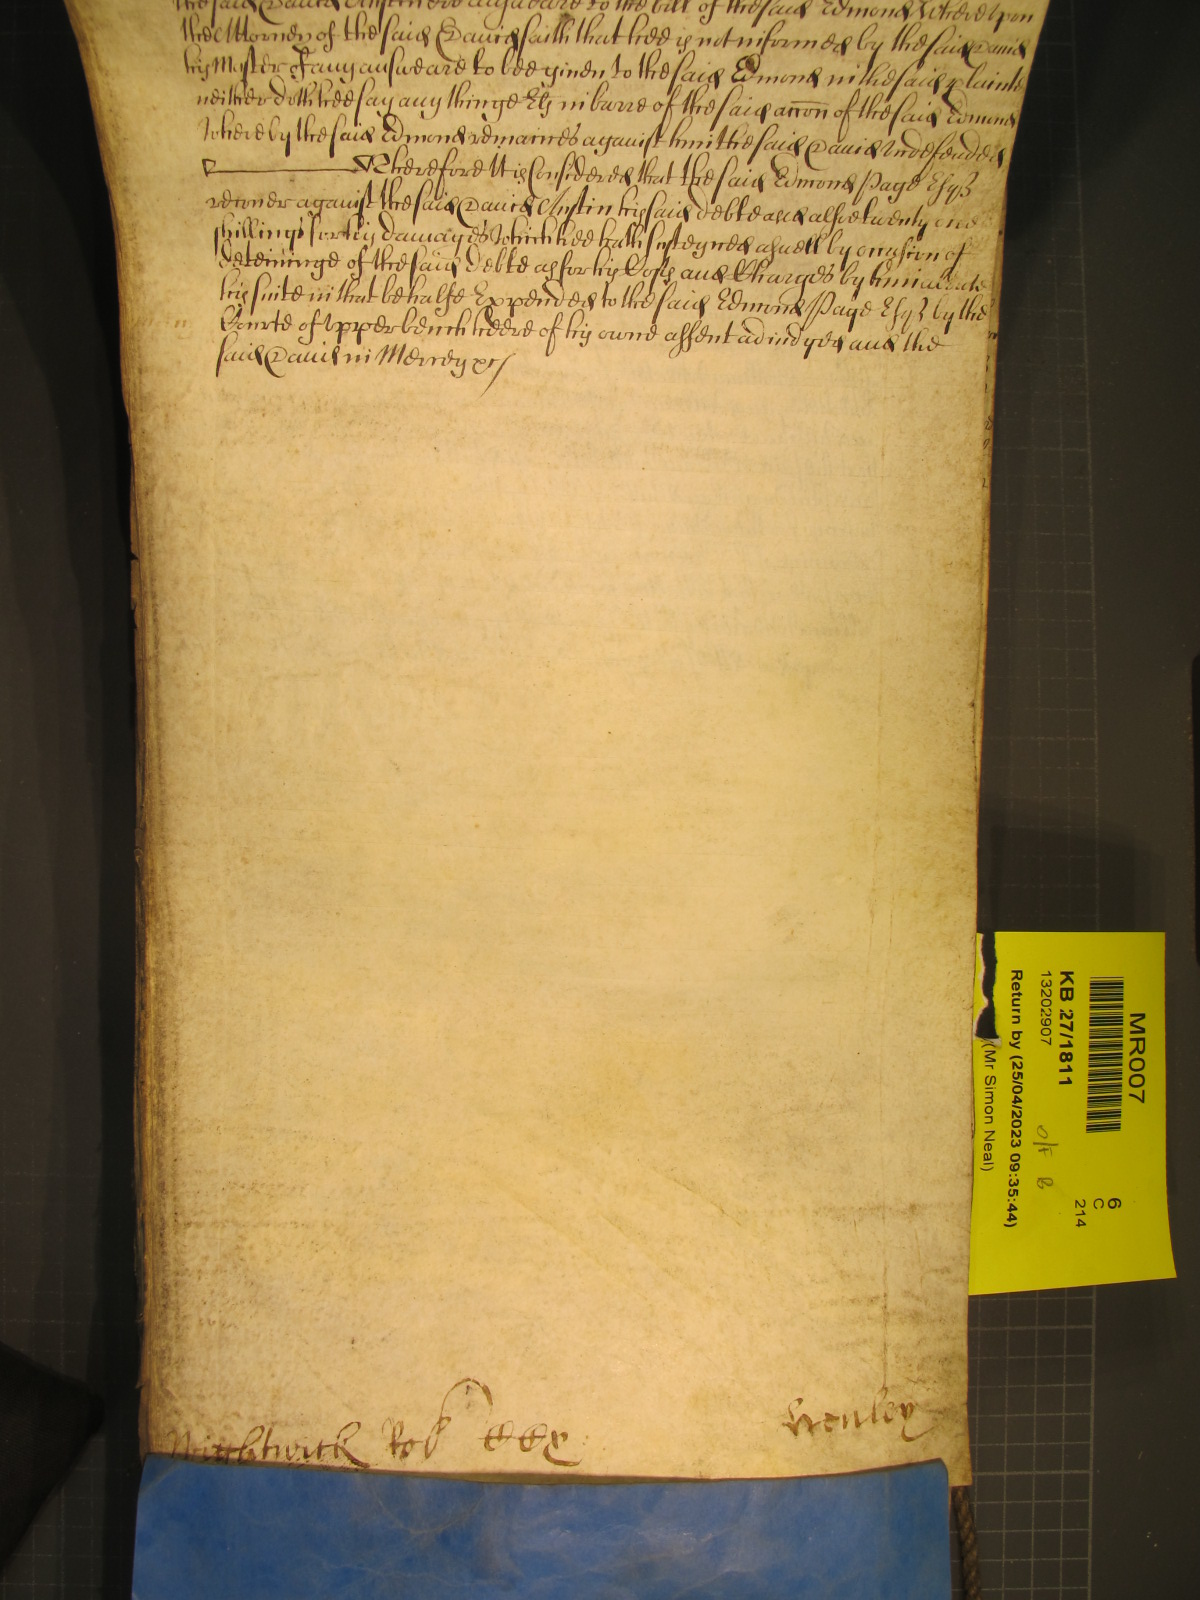 the said David Austin doe answeare to the bill of the said Edmond Whereupon
the Attorney of the said David saith that hee is not informed by the said David
his Master of any answeare to bee given to the said Edmond in the said plainte
neither doth hee say any thinge Els in barre of the said accon of the said Edmond
Whereby the said Edmond remaines against him the said David Undefended
Therefore It is Considered that the said Edmond Page Esqr
recover against the said David Austin his said debte and alsoe twenty one
shillings for his damages Which hee hath susteyned aswell by occasion of
deteininge of the said debte as for his Costs and Charges by him aboute
his suite in that behalfe Expended to the said Edmond Page Esqr by the
Courte of Upper bench heere of his owne assent adiudged and the
said David in Mercy &c
Wightwick Rob
Henley
MR007
6
C
214
KB 27/1811
13202907
O/F B
Return by (25/04/2023 09:35:44)
(Mr Simon Neal)